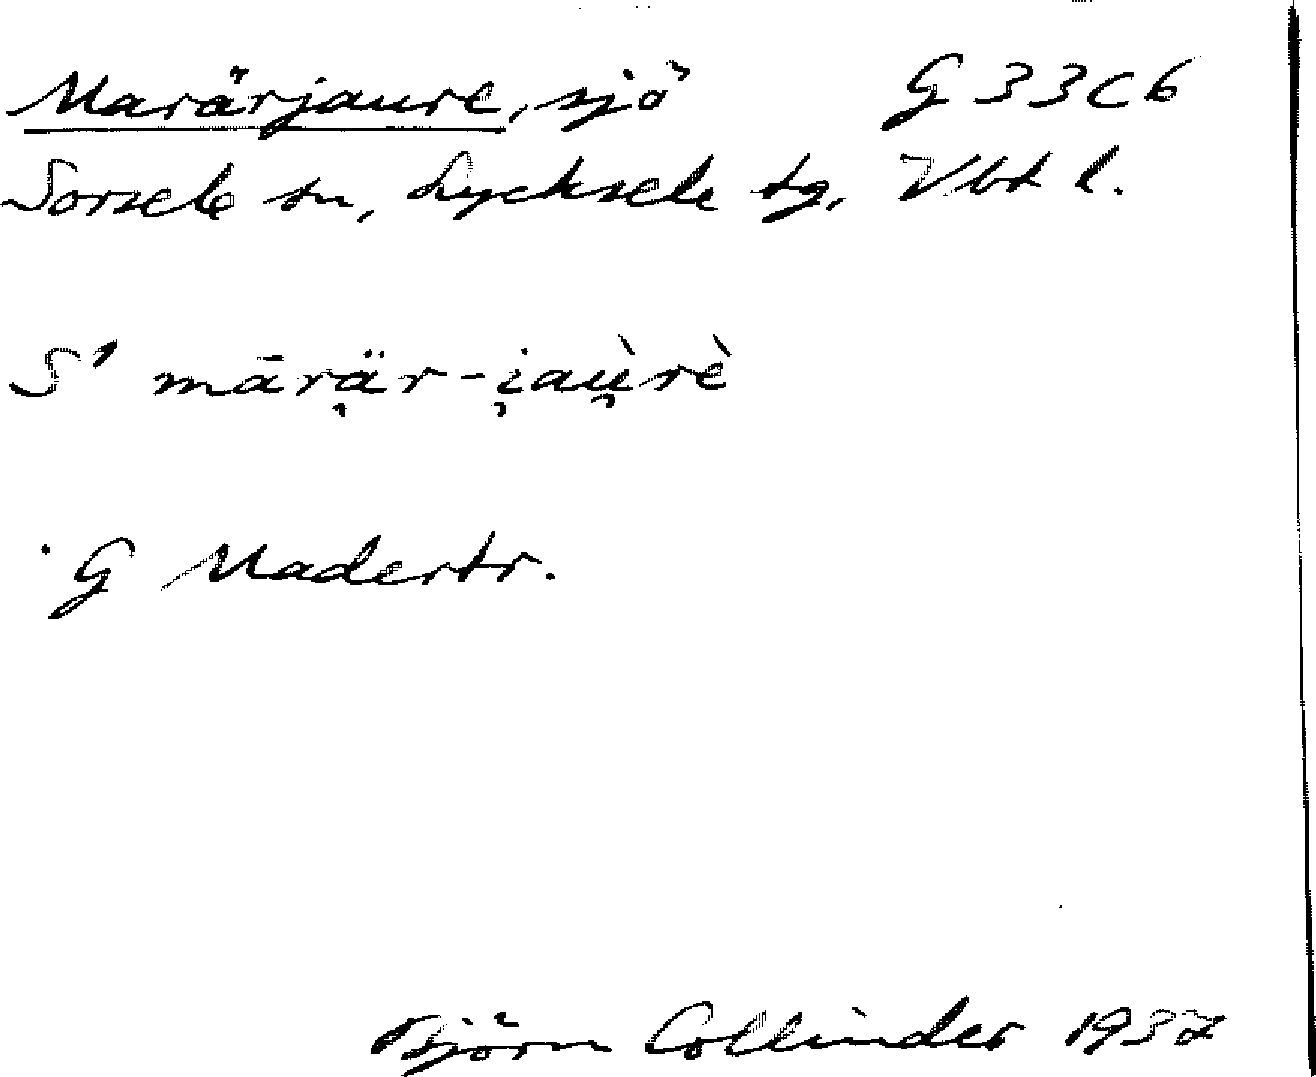 Marärjaure, sjö G 33 C 6
Sorsele sn, Lycksele tg, Vbt l.
S' mārạ̈r-i̯aù̯rè
G Madertr.
Björn Collinder 1937